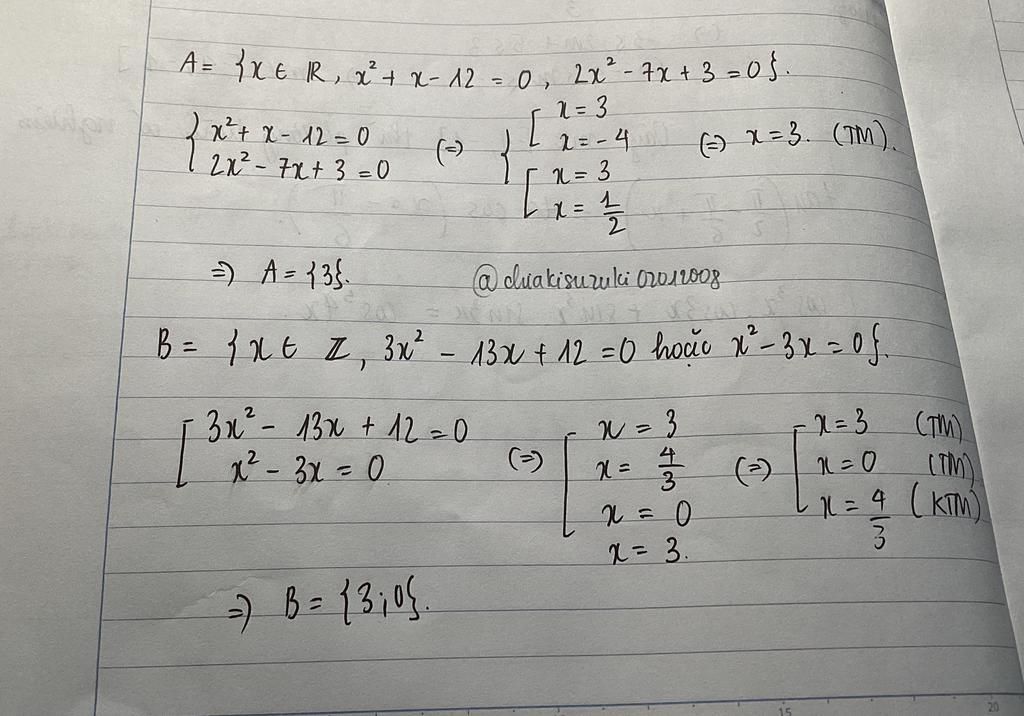 A = {x ∈ ℝ, x² + x - 12 = 0, 2x² - 7x + 3 = 0}.
{ x² + x - 12 = 0 (=) { [ x = 3 (=) x = 3. (TM).
2x² - 7x + 3 = 0 x = -4
[ x = 3
x = 1/2
=) A = {3}. @duakisuzuki02012008
B = {x ∈ ℤ, 3x² - 13x + 12 = 0 hoặc x² - 3x = 0}.
[ 3x² - 13x + 12 = 0 (=) [ x = 3 (=) [ x = 3 (TM)
x² - 3x = 0 x = 4/3 x = 0 (TM)
x = 0 x = 4/3 (KTM)
x = 3.
=) B = {3;0}.
15 20